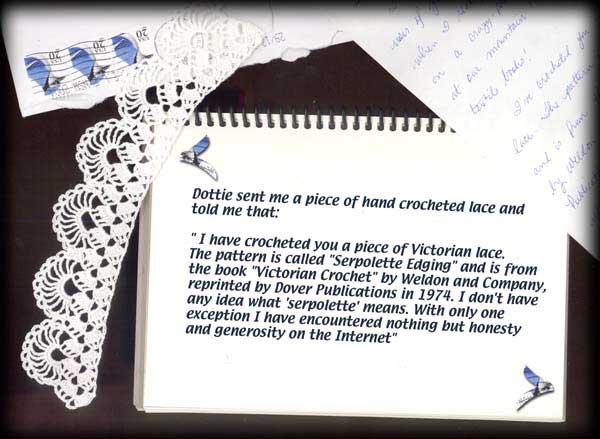 USA 20
USA 20
USA 20
when I
on a crazy
at our mountain
books!
I've crocheted you
lace. The pattern
and is from
by Weldon
Dottie sent me a piece of hand crocheted lace and
told me that:
" I have crocheted you a piece of Victorian lace.
The pattern is called "Serpolette Edging" and is from
the book "Victorian Crochet" by Weldon and Company,
reprinted by Dover Publications in 1974. I don't have
any idea what 'serpolette' means. With only one
exception I have encountered nothing but honesty
and generosity on the Internet"